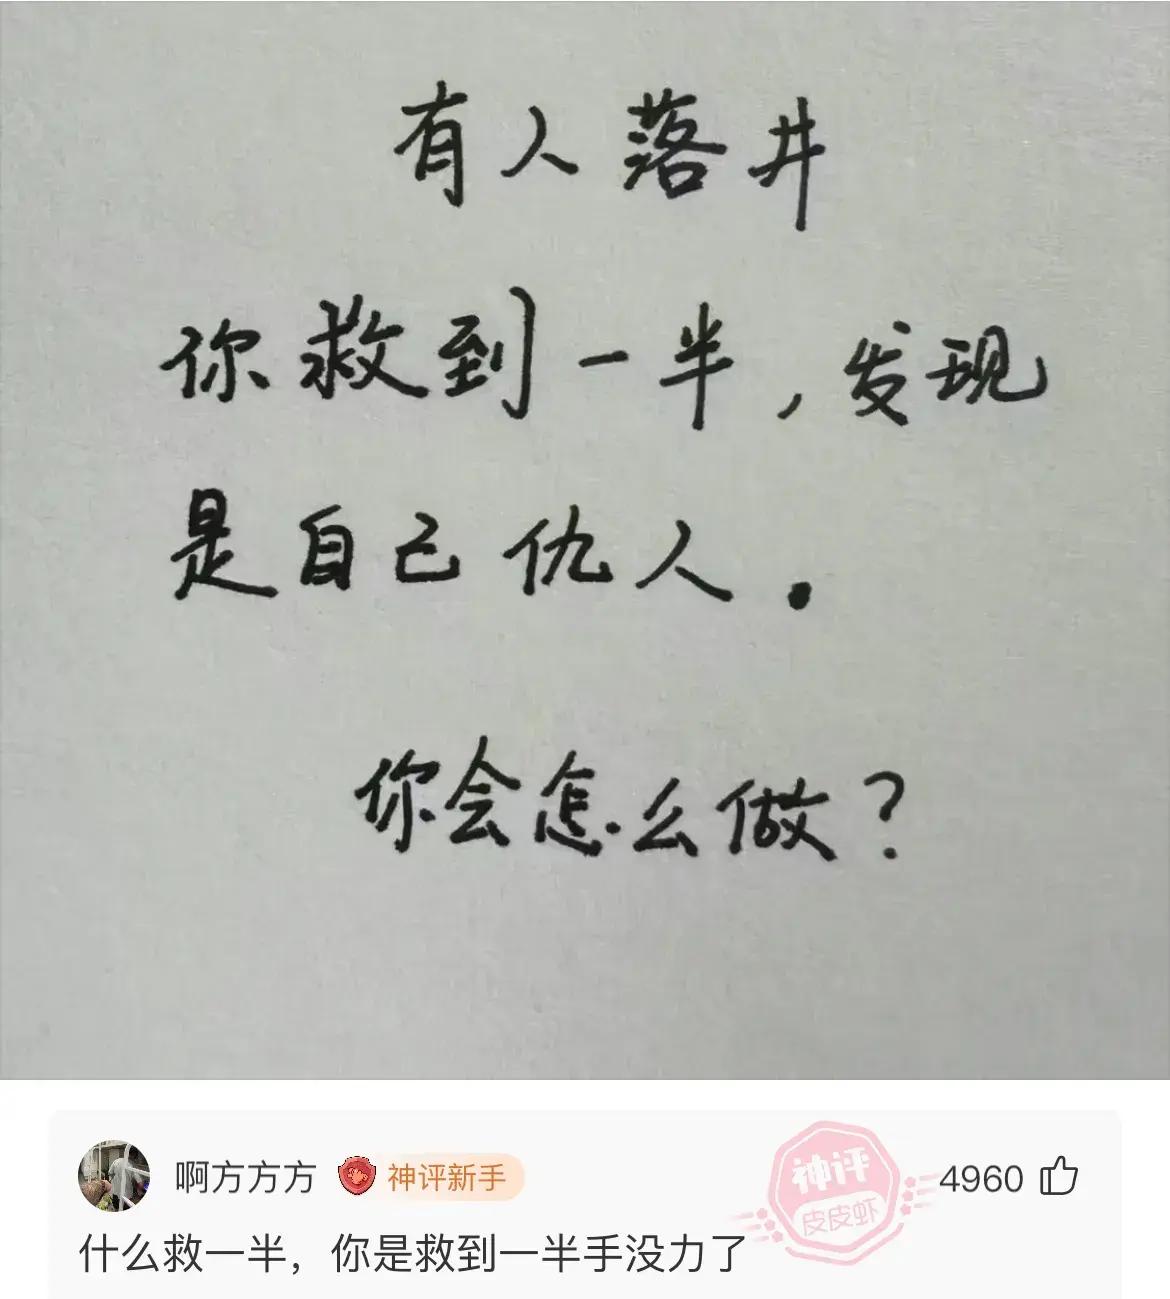 有人落井
你救到一半，发现
是自己仇人.
你会怎么做？
啊方方方 神评新手 神评 皮皮虾 4960
什么救一半，你是救到一半手没力了